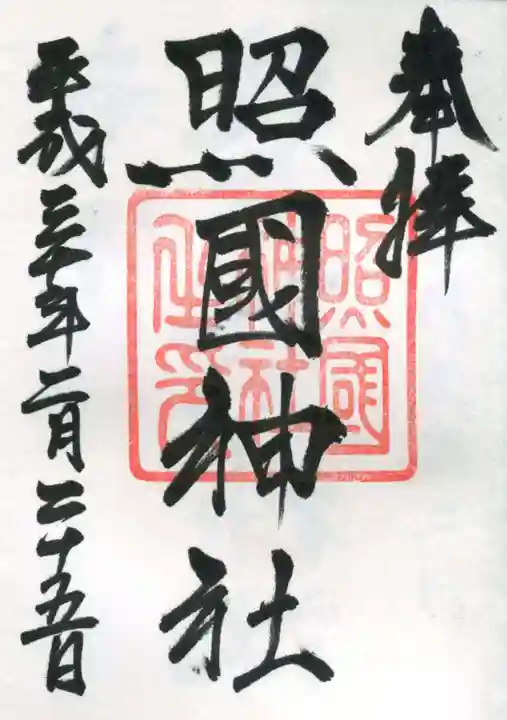 奉拝
照國神社
照國
神社
之印
平成三十年二月二十五日